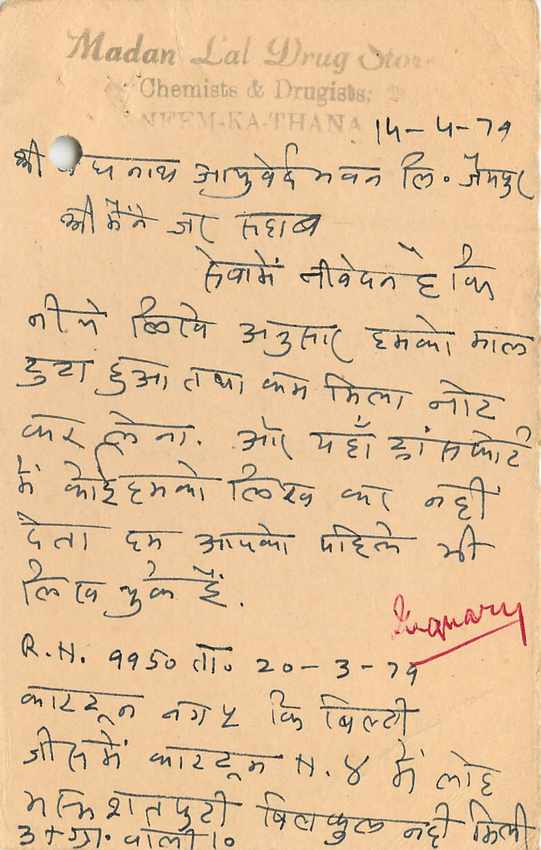 Madan Lal Drug Store
Chemists & Drugists;
NEEM-KA-THANA
14-4-79
श्री नाथ आयुर्वेद भवन लि० जयपुर
श्री मैने जर सहाब
सेवामें नीवेदन है कि
नीचे लिखे अनुसार हमको माल
टुटा हुआ तथा कम मिला नोट
कर लेना. और यहाँ ट्रांसपोर्ट
में कोई हमको लिख कर नहीं
देता हम आपको पहिले भी
लिख चुके हैं.
R.N. 9950 ता० 20-3-79
कारटून नग ५ कि बिल्टी
जीसमें कारटून N. ४ में लोह
भस्म शतपुटी बिलकुल नही मिली
३ ग्रा. वाली १०